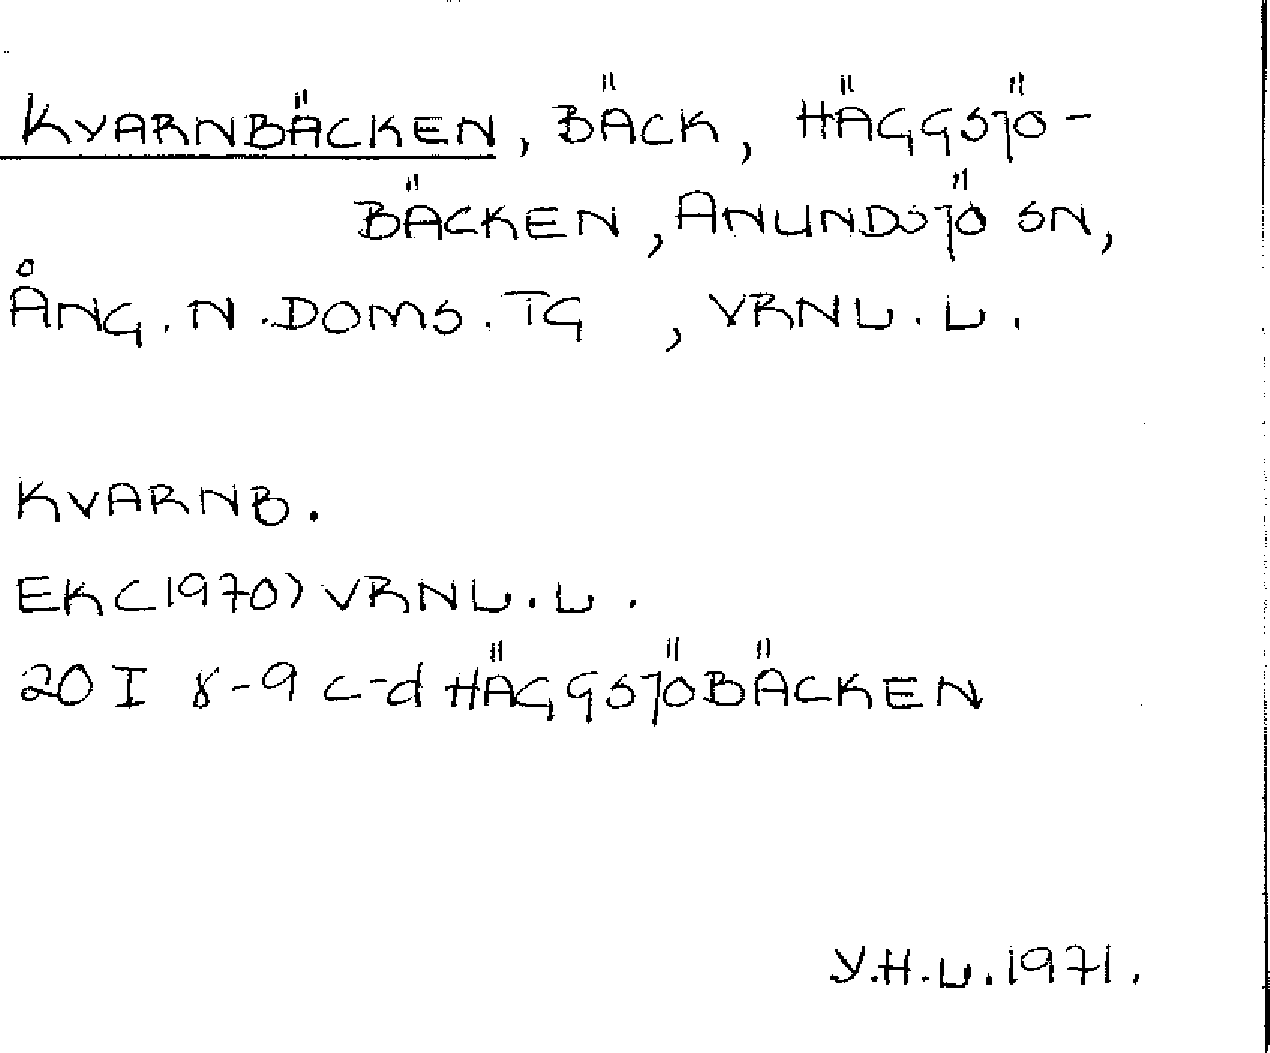 KVARNBÄCKEN, BÄCK, HÄGGSJÖ-
BÄCKEN, ANUNDSJÖ SN,
ÅNG. N. DOMS. TG , VRNL. L.
KVARNB.
EK (1970) VRNL. L.
20 I 8-9 c-d HÄGGSJÖBÄCKEN
Y.H.L. 1971.